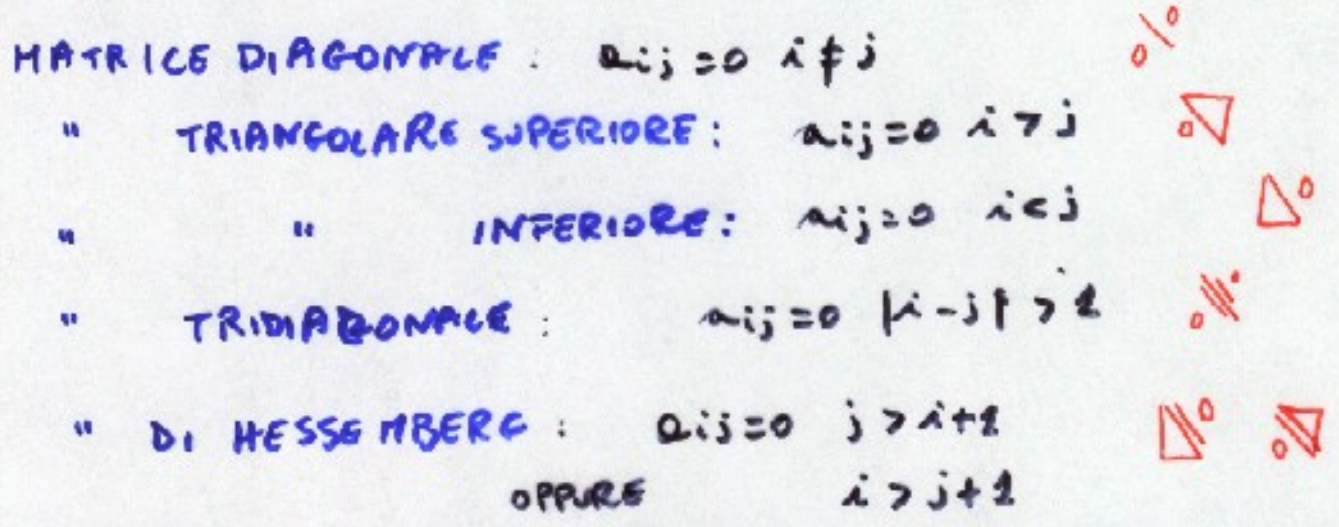 MATRICE DIAGONALE : aij = 0 i ≠ j
" TRIANGOLARE SUPERIORE : aij = 0 i > j
" " INFERIORE : aij = 0 i < j
" TRIDIAGONALE : aij = 0 |i - j| > 1
" DI HESSEMBERG : aij = 0 j > i+1
OPPURE i > j+1